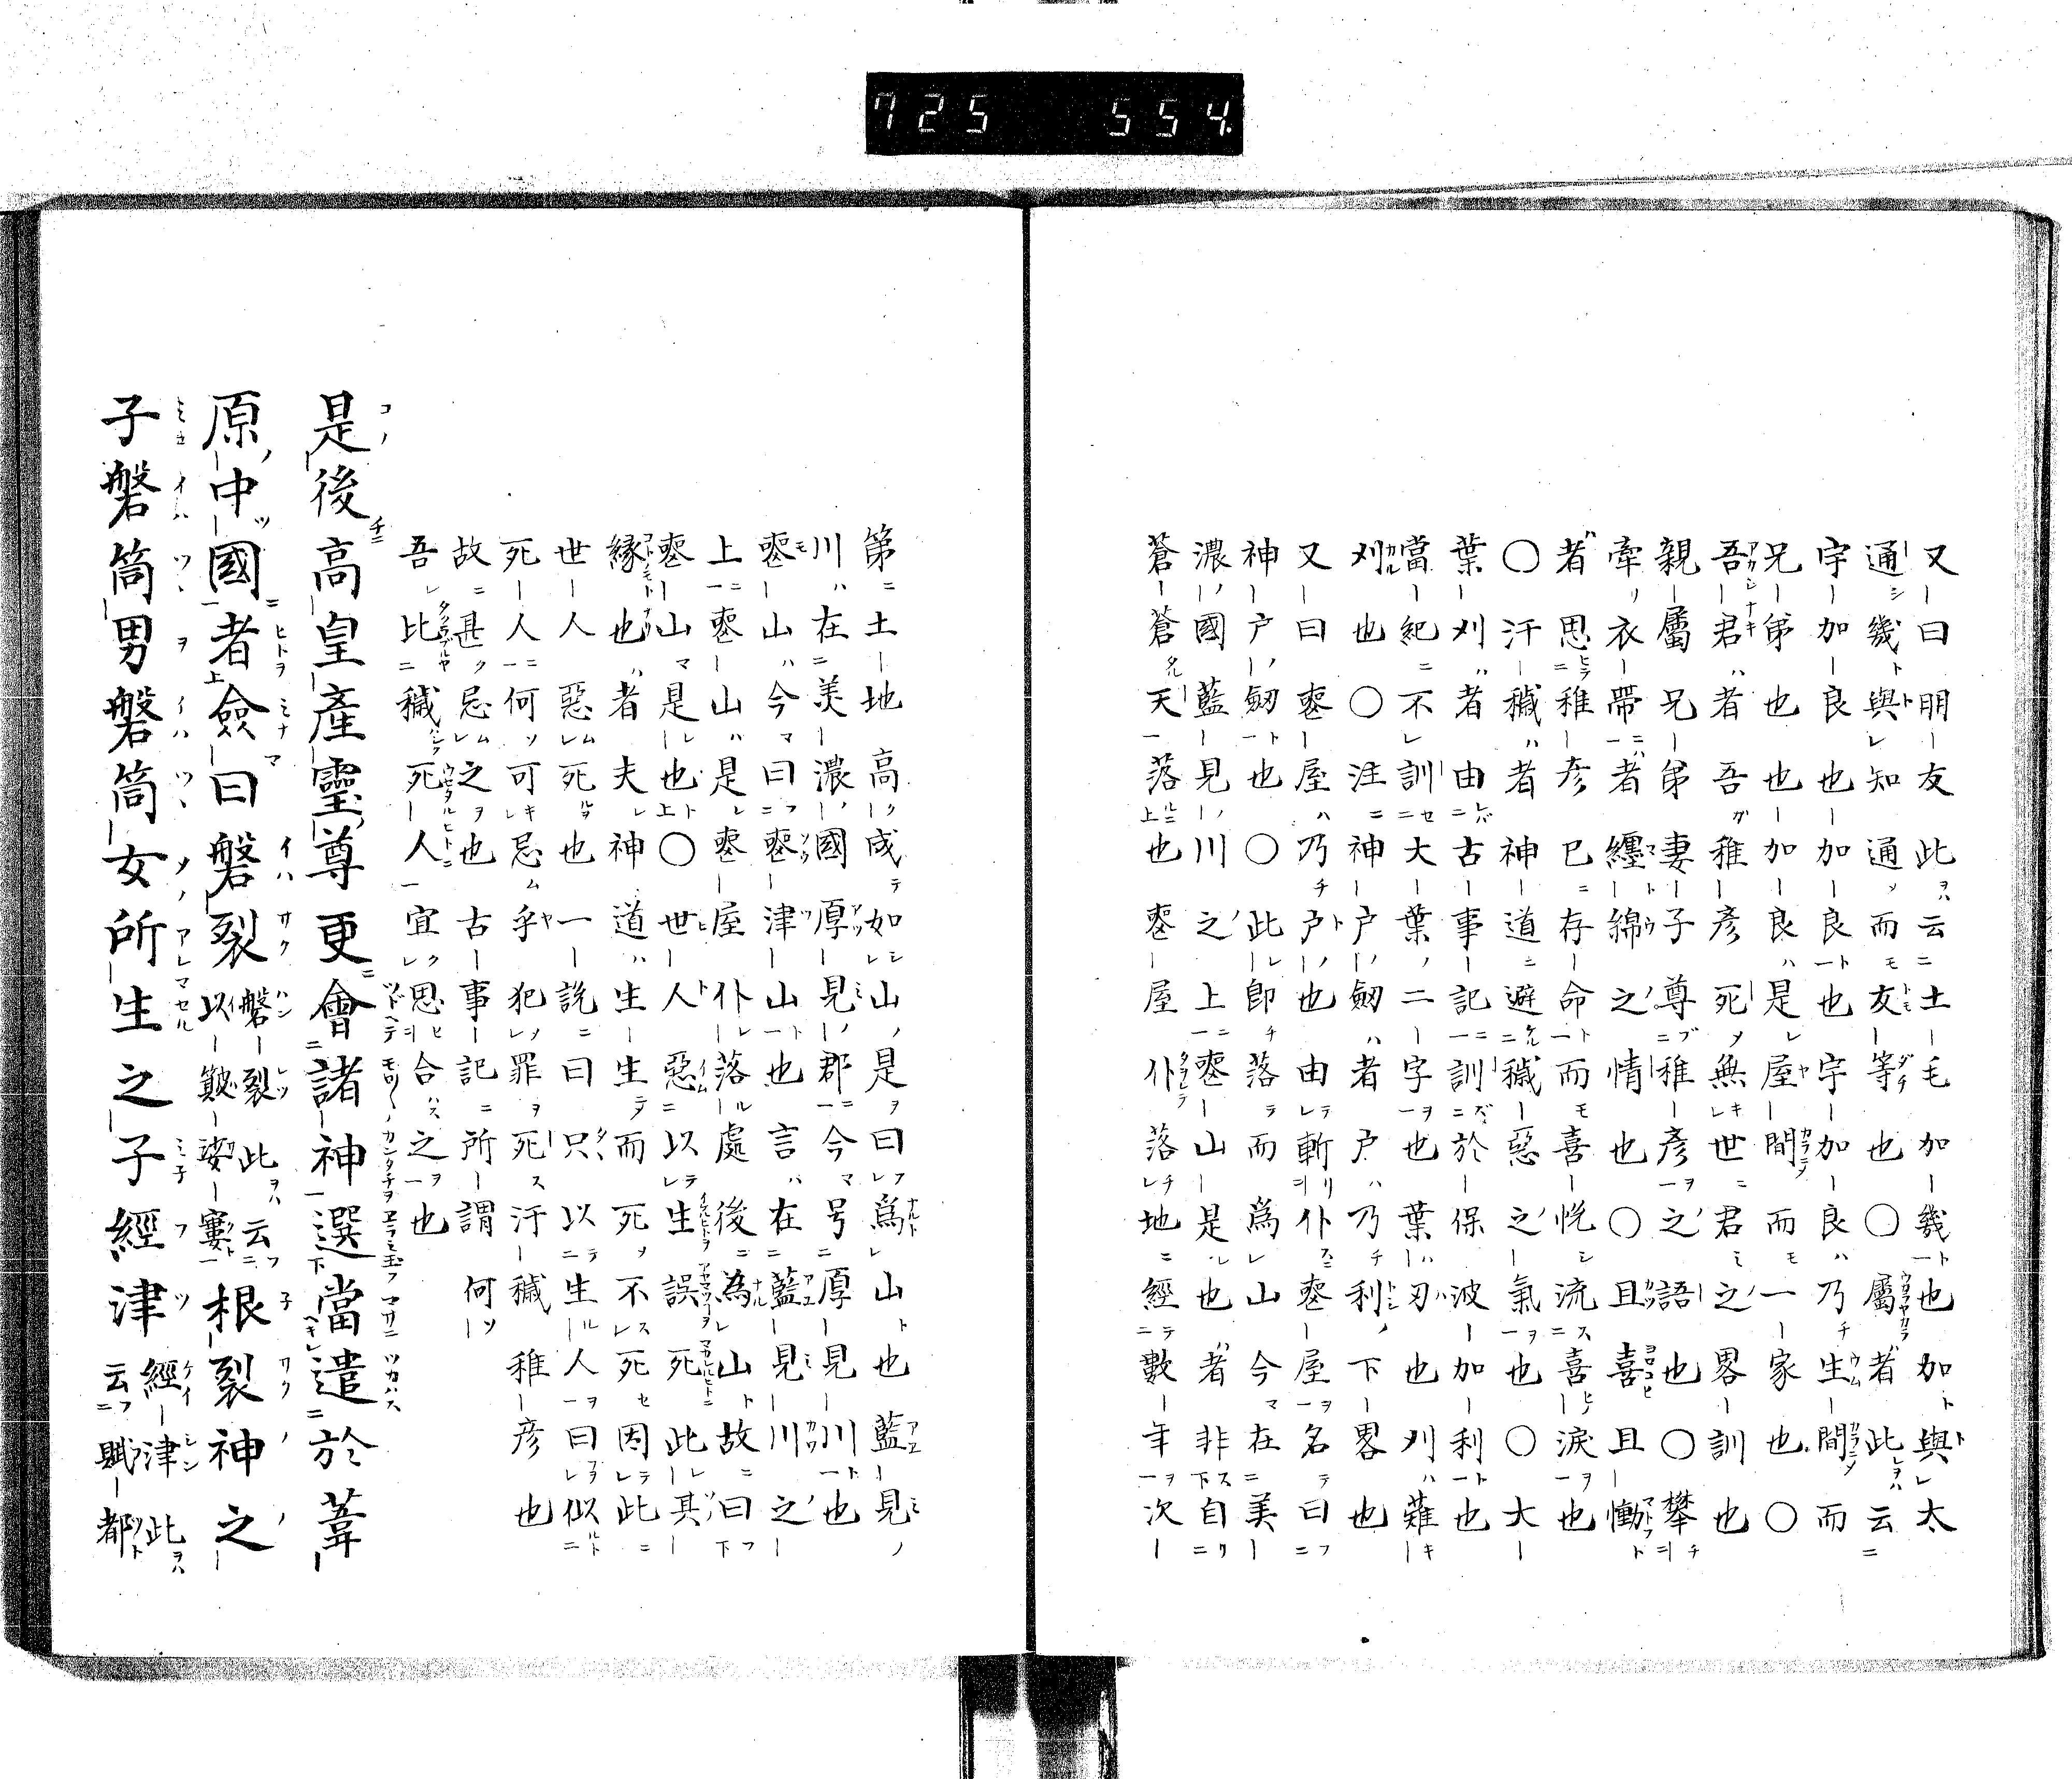 725 554
又曰朋友此云土毛加幾也加與太
通幾與知通而友等也○屬者此云
宇加良也加良也宇加良乃生間而
兄弟也也加良是屋間而一家也○
吾君者吾稚彦死無世君之畧訓也
親屬兄弟妻子尊稚彦之語也○攀
牽衣帶者纏綿之情也○且喜且慟
者思稚彦已存命而喜恍流喜淚也
○汗穢者神道避穢惡之氣也○大
葉刈者由古事記訓於保波加利也
當紀不訓大葉二字也葉刃也刈薙
刈也○注神戸劔者戸乃利下畧也
又曰喪屋乃戸也由斬仆喪屋名曰
神戸劔也○此即落而爲山今在美
濃國藍見川之上喪山是也者非自
蒼蒼天落也喪屋仆落地經數年次
第土地高成如山是曰爲山也藍見
川在美濃國厚見郡今号厚見川也
喪山今曰喪津山也言在藍見川之
上喪山是喪屋仆落處後為山故曰
喪山是也○世人惡以生誤死此其
縁也者夫神道生生而死不死因此
世人惡死也一説曰只以生人曰似
死人何可忌乎犯罪死汗穢稚彦也
故甚忌之也古事記所謂何
吾比穢死人宜思合之也
是後高皇產靈尊更會諸神選當遣於葦
原中國者僉曰磐裂磐裂此云以簸娑簍根裂神之
子磐筒男磐筒女所生之子經津經津此云賦都